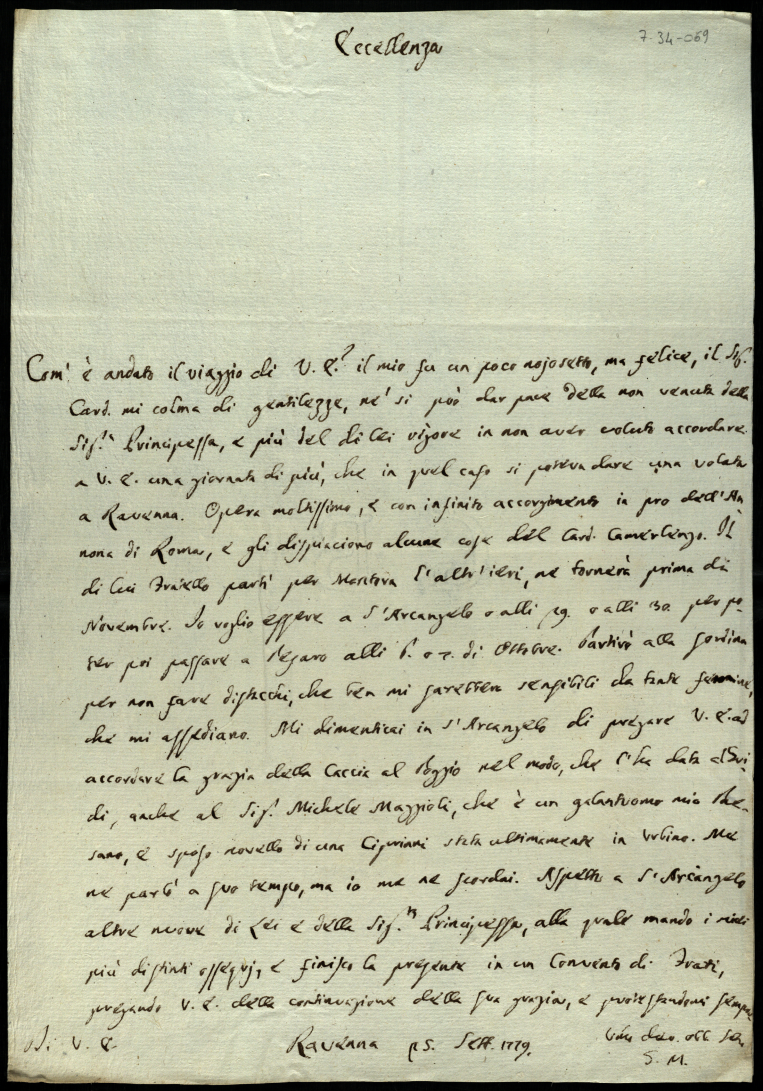 7-34-069
Eccellenza
Com' è andato il viaggio di V. E.? il mio fu un poco nojosetto, ma felice, il Sig.
Card. mi colma di gentilezze, ne' si può dar pace della non venuta della
Sig.ª Principessa, e più del di lei rigore in non aver voluto accordare
a V. E. una giornata di più, che in quel caso si poteva dare una volata
a Ravenna. Opera moltissimo, e con infinito accorgimento in pro dell'An
nona di Roma, e gli dispiacciono alcune cose del Card. Camerlengo. Il
di lui Fratello partì per Mantova l'altr'ieri, ne tornerà prima di
Novembre. Io voglio essere a S'Arcangelo o alli 29. o alli 30. per po-
ter poi passare a Pesaro alli 6. o 7. di Ottobre. Partirò alla sordina
per non fare distacchi, che ben mi sarebbero sensibili da tante femmine,
che mi assediano. Mi dimenticai in S'Arcangelo di pregare V. E. ad
accordare la grazia della Caccia al Poggio nel modo, che l'ha data al
di, anche al Sig. Michele Mazzioli, che è un galantuomo mio Pe-
sano, e sposo novello di una Cipriani stata ultimamente in Urbino. Me
ne parlò a suo tempo, ma io me ne scordai. Aspetto a S'Arcangelo
altre nuove di Lei e della Sig.ª Principessa, alla quale mando i miei
più distinti ossequj, e finisco la presente in un Convento di Frati,
pregando V. E. della continuazione della sua grazia, e protestandomi sempre
di V. E. Ravenna 25. Sett. 1779. Um̃o dev̄o. obb. Ser.
S. M.